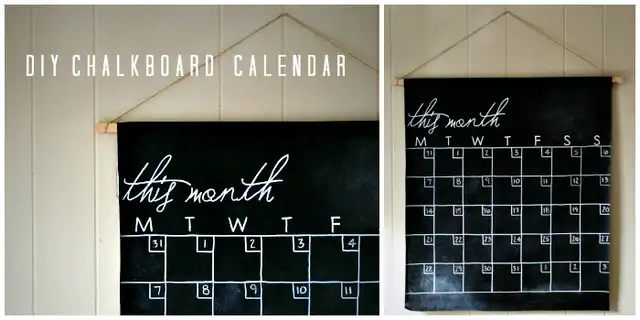 DIY CHALKBOARD CALENDAR
this month
M T W T F
31 1 2 3 4
7 8 9 10 11
this month
M T W T F S S
31 1 2 3 4 5 6
7 8 9 10 11 12 13
14 15 16 17 18 19 20
21 22 23 24 25 26 27
28 29 30 31 1 2 3